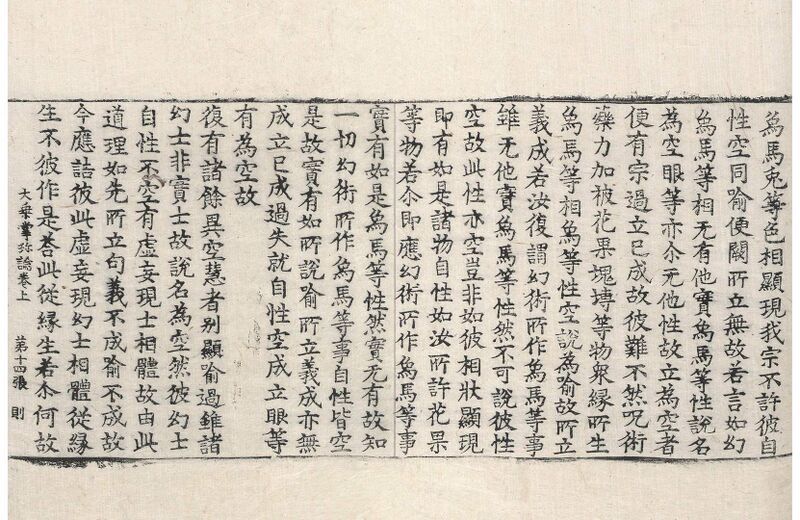 象馬兎等色相顯現我宗不許彼自
性空同喻便闕所立無故若言如幻
象馬等相无有他實象馬等性說名
為空眼等亦尒无他性故立為空者
便有宗過立已成故彼難不然呪術
藥力加被花果塊塼等物衆緣所生
象馬等相象馬等性空說為喻故所立
義成若汝復謂幻術所作象馬等事
雖无他實象馬等性然不可說彼性
空故此性亦空豈非如彼相狀顯現
即有如是諸物自性如汝所許花果
等物若尒即應幻術所作象馬等事
實有如是象馬等性然實无有故知
一切幻術所作象馬等事自性皆空
是故實有如所說喻所立義成亦無
成立已成過失就自性空成立眼等
有為空故
復有諸餘異空慧者別顯喻過雖諸
幻士非實士故說名為空然彼幻士
自性不空有虛妄現士相體故由此
道理如先所立句義不成喻不成故
今應詰彼此虛妄現幻士相體從緣
生不彼作是荅此從緣生若尒何故
大乗掌珎論卷上 第十四張 則